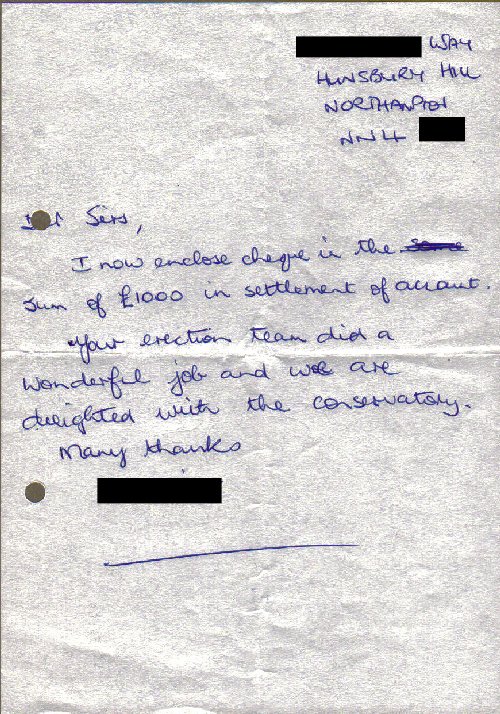 WAY
HUNSBURY HILL
NORTHAMPTON
NN4
Sirs,
I now enclose cheque in the
sum of £1000 in settlement of account.
Your erection team did a
wonderful job and we are
delighted with the conservatory.
Many thanks